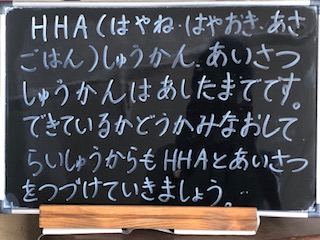 HHA(はやね・はやおき、あさ
ごはん)しゅうかん、あいさつ
しゅうかんはあしたまでです。
できているかどうかみなおして
らいしゅうからもHHAとあいさつ
をつづけていきましょう。